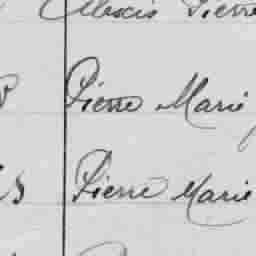 Alexis Pierre
Pierre Marie
Pierre Marie